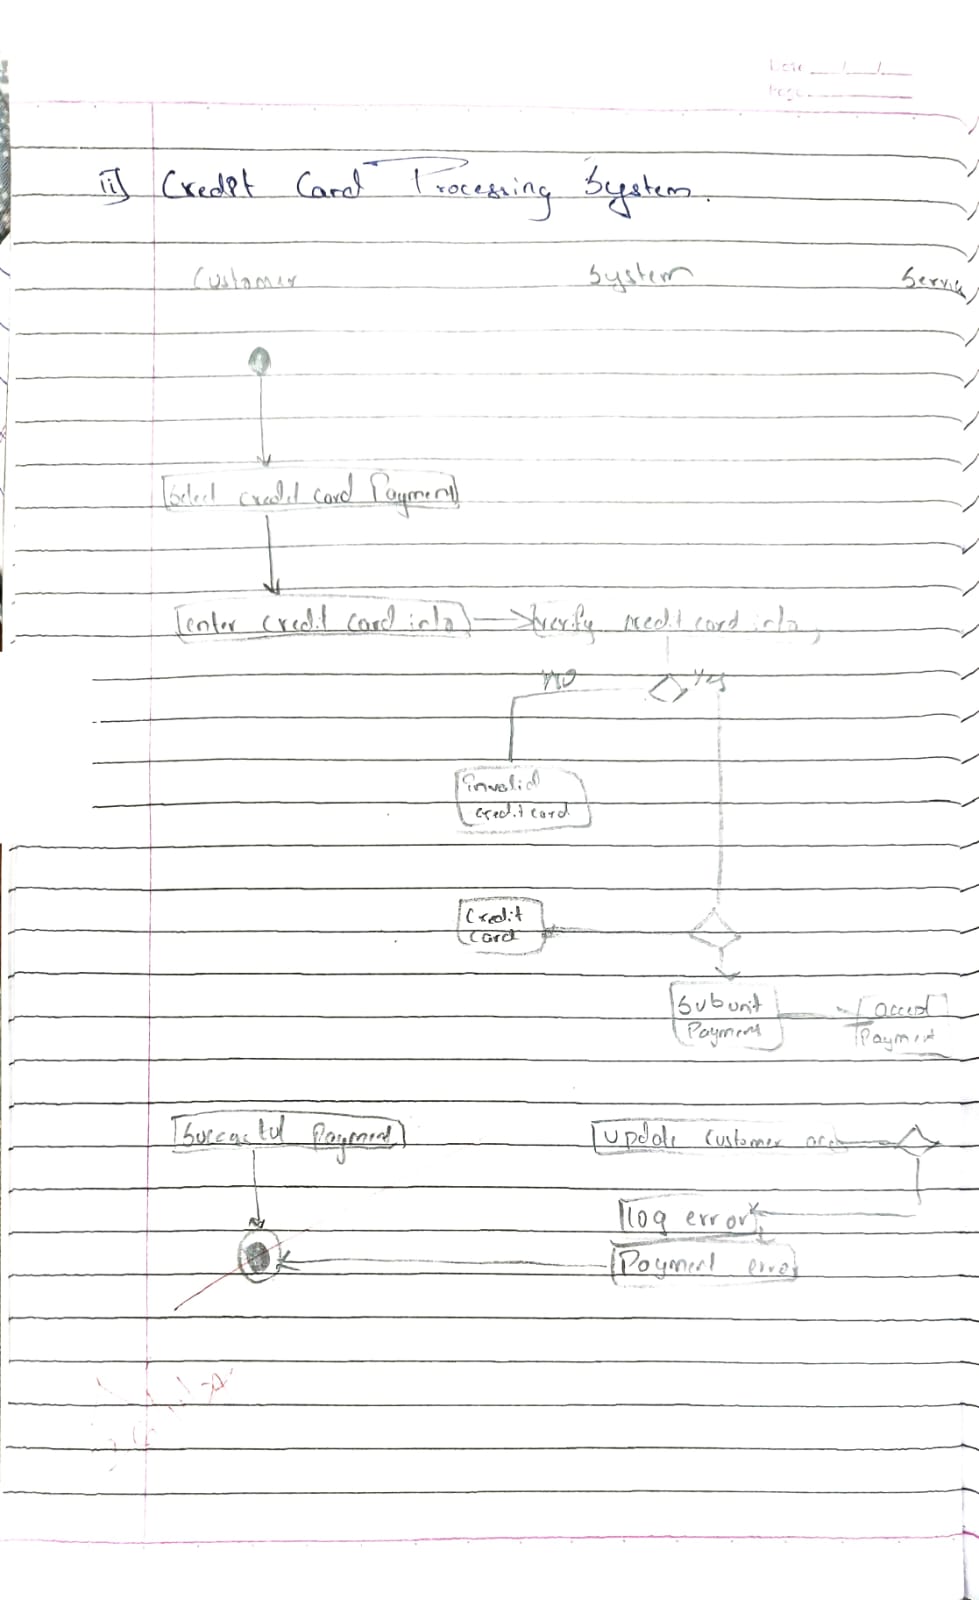 Date
Page
ii) Credit Card Processing System.
Customer System Servic
Select credit card Payment
enter credit card info verify credit card info
NO Yes
invalid
credit card
Credit
Card
Subunit accept
Payment Payment
Succesful Payment Update Customer
log error
Payment error